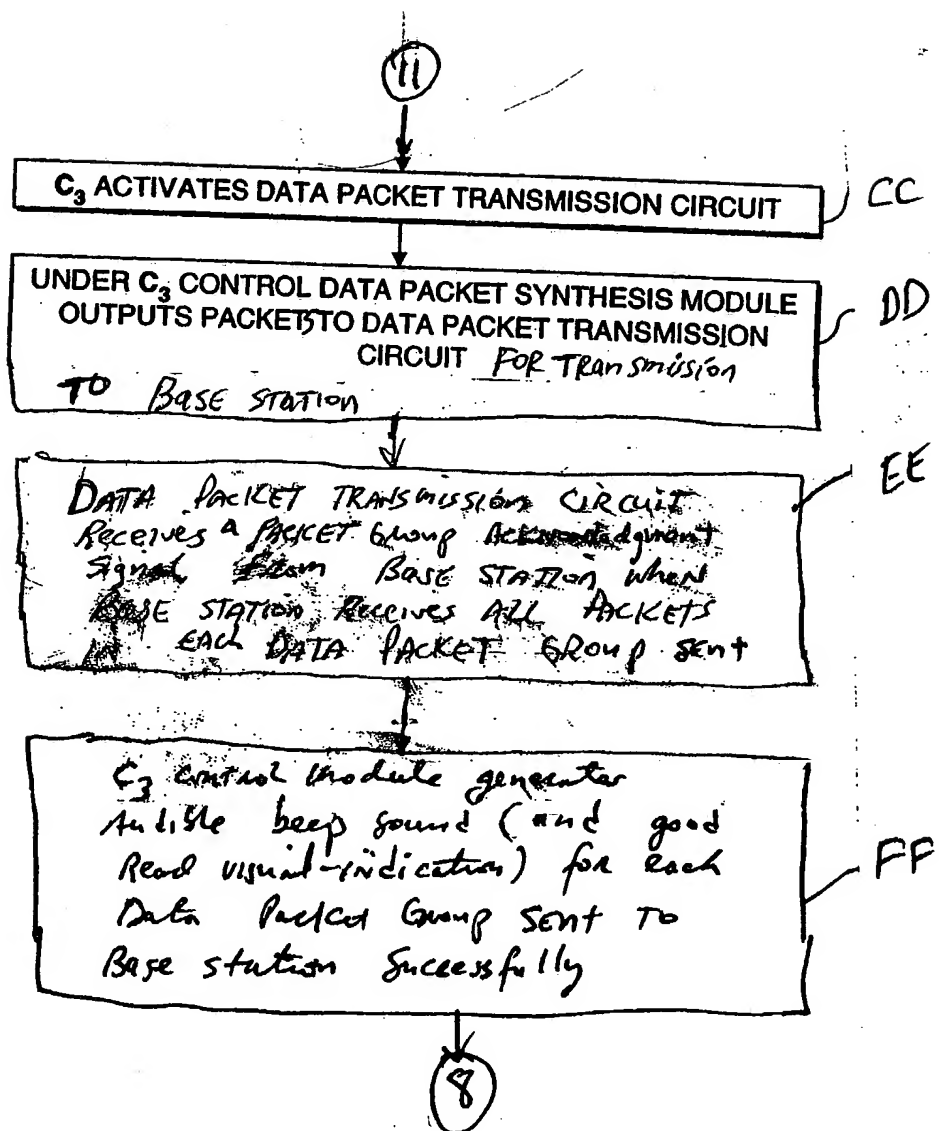 11
C3 ACTIVATES DATA PACKET TRANSMISSION CIRCUIT
CC
UNDER C3 CONTROL DATA PACKET SYNTHESIS MODULE
OUTPUTS PACKETS TO DATA PACKET TRANSMISSION
CIRCUIT FOR Transmission
TO BASE STATION
DD
DATA PACKET TRANSMISSION CIRCUIT
Receives a PACKET Group Acknowledgment
Signal From BASE STATION when
BASE STATION Receives ALL PACKETS
IN EACH DATA PACKET GROUP sent
EE
C3 control module generates
Audible beep sound (and good
Read visual-indication) for each
Data Packet Group SENT TO
Base station Successfully
FF
8